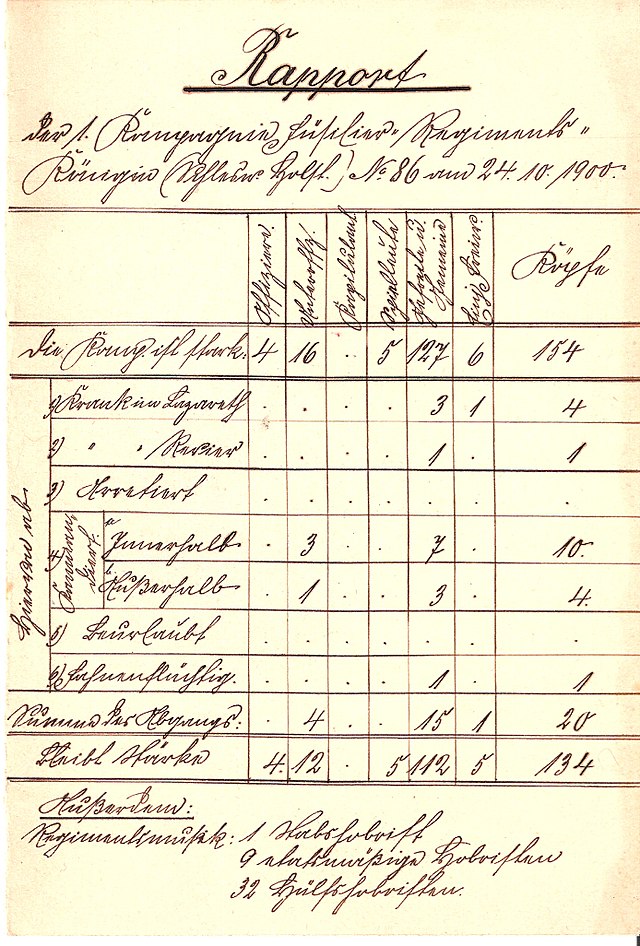 Rapport
der 1. Kompagnie Füsilier-Regiments
Königin (Schlesw. Holst.) No 86 am 24. 10. 1900.
Offiziere. Unteroffz. Spielleute Gefreite u. Gemeine Einj. Freiw. Köpfe
Die Komp. ist stark: 4 16 . 5 127 6 154
Hiervon ab
1) Krank im Lazareth . . . . 3 1 4
2) " " Revier . . . . 1 . 1
3) Arretiert . . . . . . .
4) Kommandiert.
a Innerhalb . 3 . . 7 . 10.
b. Außerhalb . 1 . . 3 . 4.
5) Beurlaubt . . . . . . .
6) Fahnenflüchtig. . . . . 1 . 1
Summe des Abgangs: . 4 . . 15 1 20
Bleibt Stärke 4. 12 . 5 112 5 134
Außerdem:
Regimentsmusik: 1 Stabshoboist
9 etatsmäßige Hoboisten
32 Hülfshoboisten.